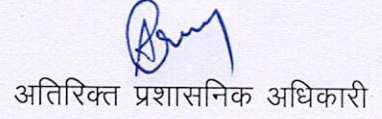 अतिरिक्त प्रशासनिक अधिकारी